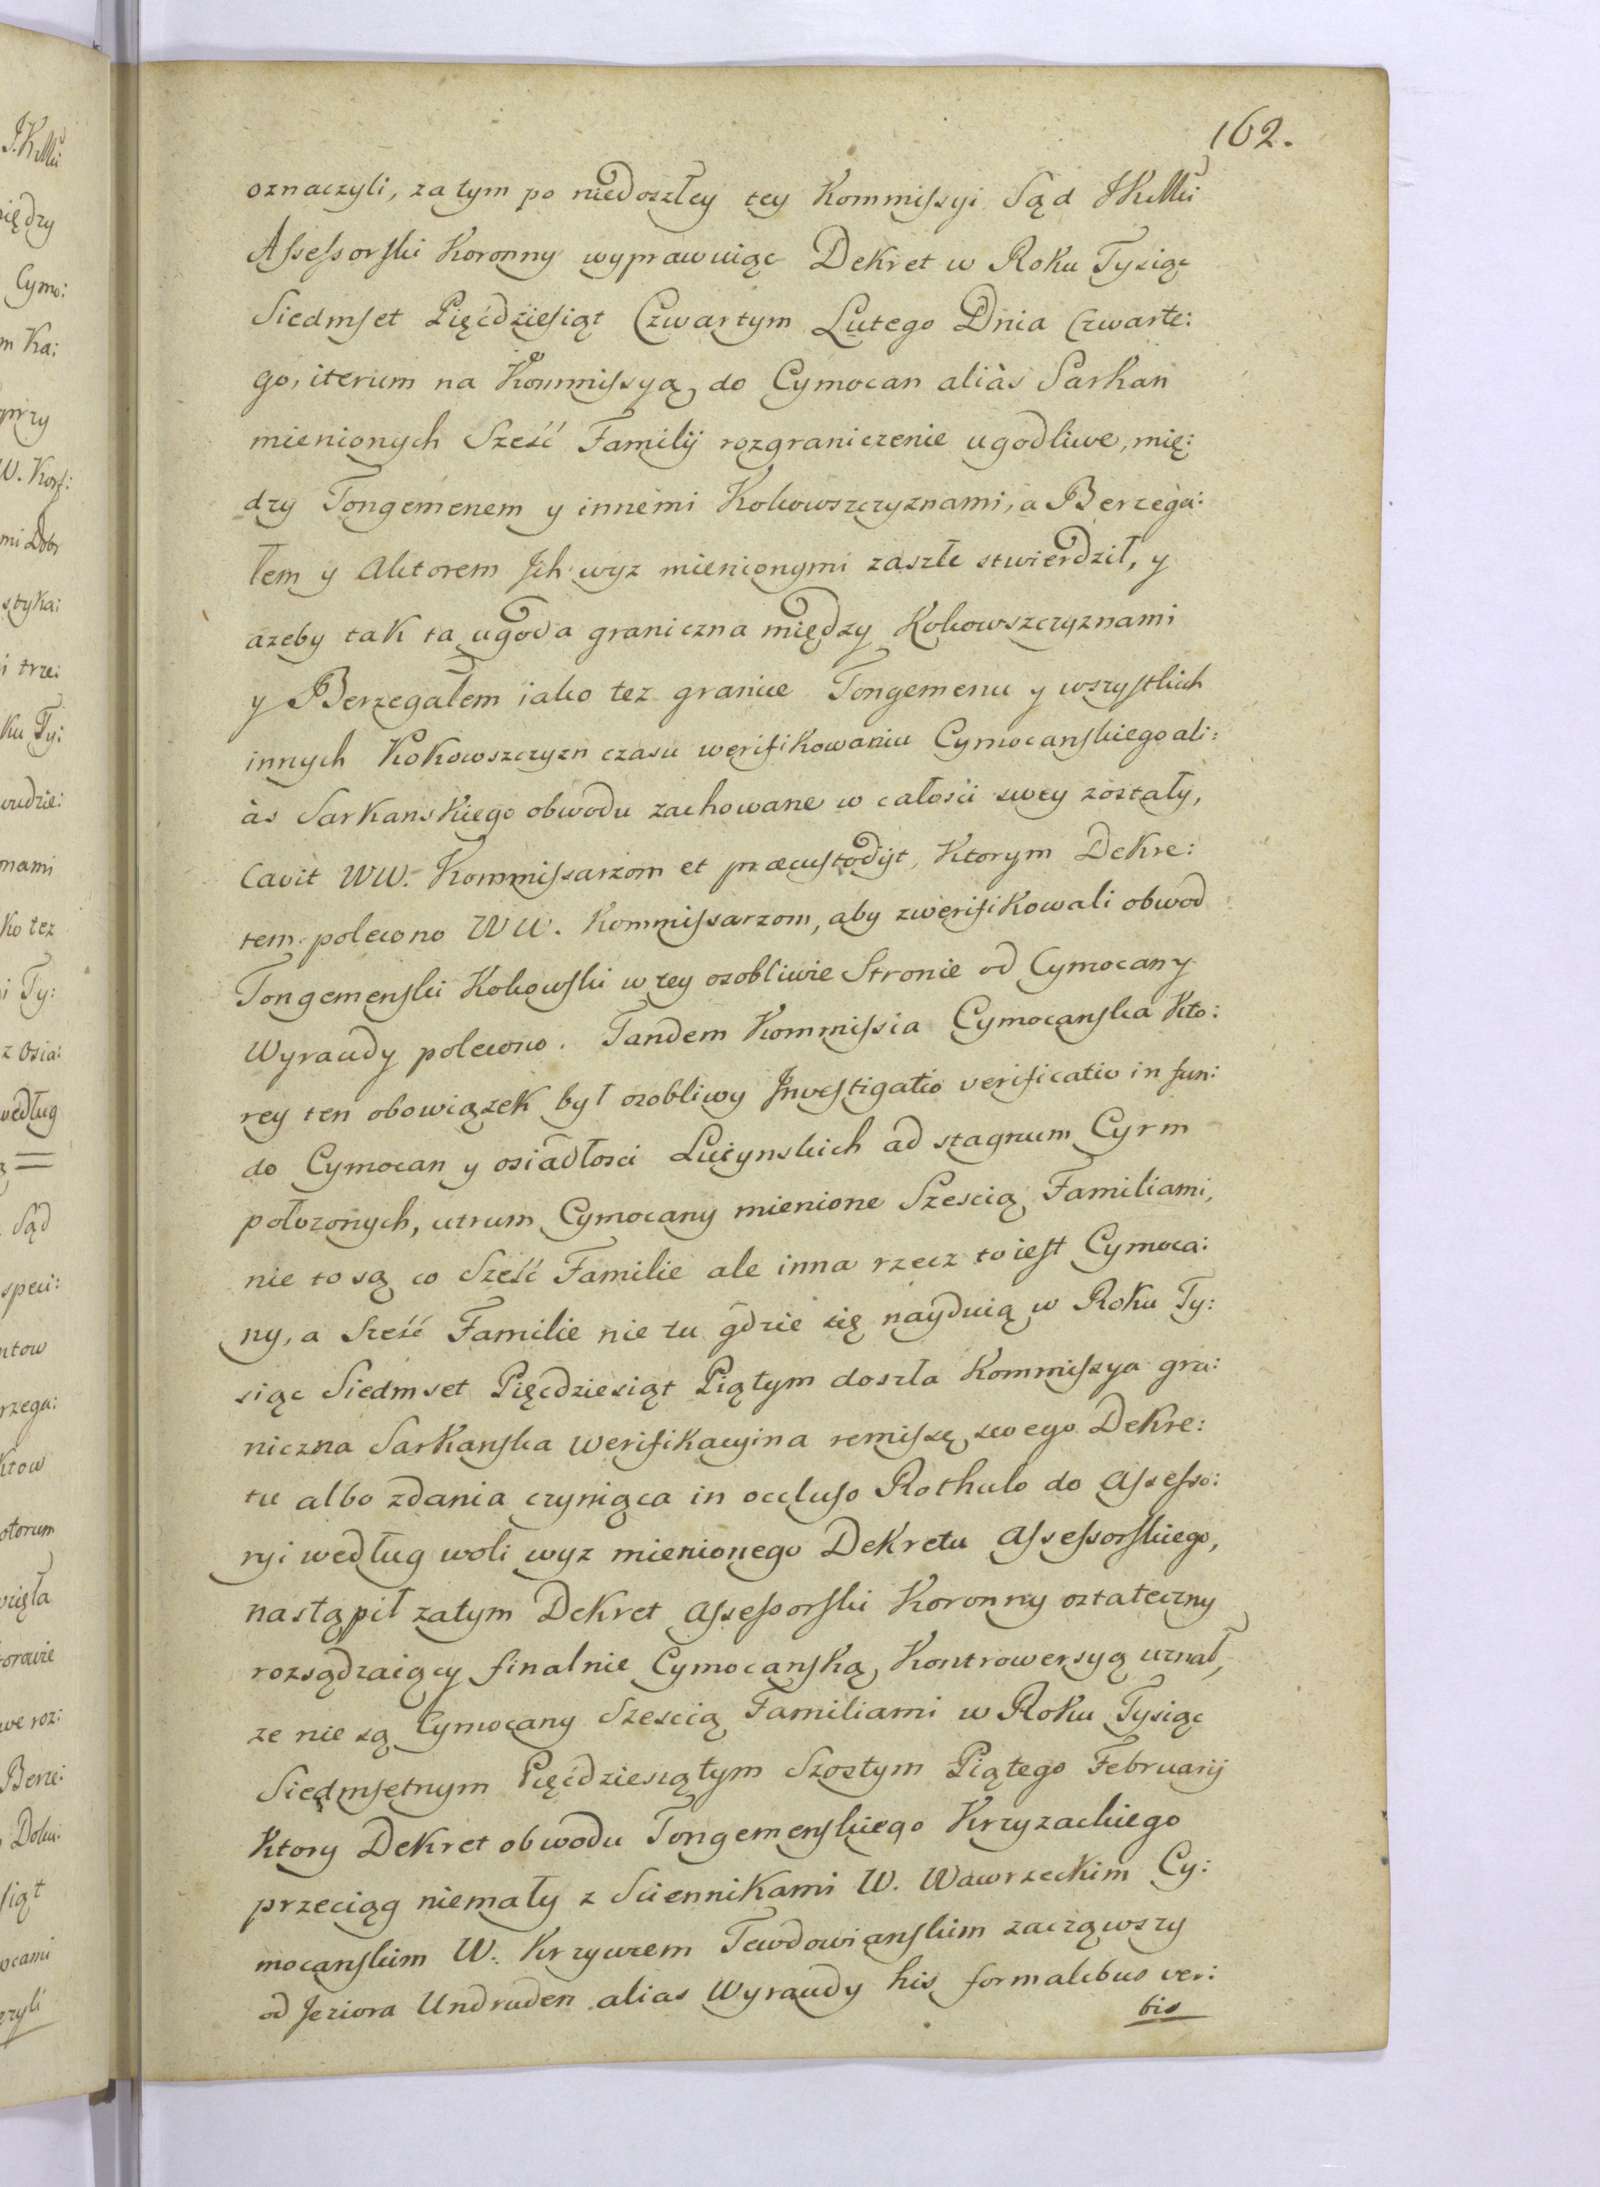 162.
oznaczyli, zatym po niedoszłey tey Kommissyi Sąd JKMći
Assessorski Koronny wyprawuiąc Dekret w Roku Tysiąc
Siedmset Pięćdziesiąt Czwartym Lutego Dnia Czwarte:
go, iterum na Kommissyą do Cymocan aliàs Sarkan
mienionych Sześć Familij rozgraniczenie ugodliwe, mię:
dzy Tongemenem y innemi Kokowszczyznami, a Berzega:
łem y Aktorem Jch wyz mienionymi zaszłe stwierdził, y
azeby tak ta ugoda graniczna między Kokowszczyznami
y Berzegałem iako tez granice Tongemenu y wszystkich
innych Kokowszczyzn czasu werifikowania Cymocanskiego ali:
às Sarkanskiego obwodu zachowane w całości swey zostały,
Cavit WW. Kommissarzom et præcustodijt, Ktorym Dekre:
tem polecono WW. Kommissarzom, aby zwerifikowali obwod
Tongemenski Kokowski w tey osobliwie Stronie od Cymocany
Wyraudy polecono. Tandem Kommissia Cymocanska Kto:
rey ten obowiązek był osobliwy Jnvestigatio verificatio in fun:
do Cymocan y osiadłosci Lucynskich ad stagnum Cyrm
połozonych, utrum Cymocany mienione Szescią Familiami,
nie to są co Sześć Familie ale inna rzecz to iest Cymoca:
ny, a Sześć Familie nie tu gdzie się nayduią w Roku Ty:
siąc Siedmset Pięcdziesiąt Piątym doszła Kommissya gra:
niczna Sarkanska Werifikacyina remissę swego Dekre:
tu albo zdania czyniąca in occluso Rothulo do Assesso:
ryi według woli wyz mienionego Dekretu Assessorskiego,
nastąpił zatym Dekret Assessorski Koronny ostateczny
rozsądzaiący finalnie Cymocanską Kontrowersyą uznał,
ze nie są Cymocany Szescią Familiami w Roku Tysiąc
Siedmsetnym Pięćdziesiątym Szostym Piątego Februarij
Ktory Dekret obwodu Tongemenskiego Krzyzackiego
przeciąg niemały z Sciennikami W. Wawrzeckim Cy:
mocanskim W. Krzywcem Tewdowianskim zacząwszy
od Jeziora Undruden alias Wyraudy his formalibus ver:
bis